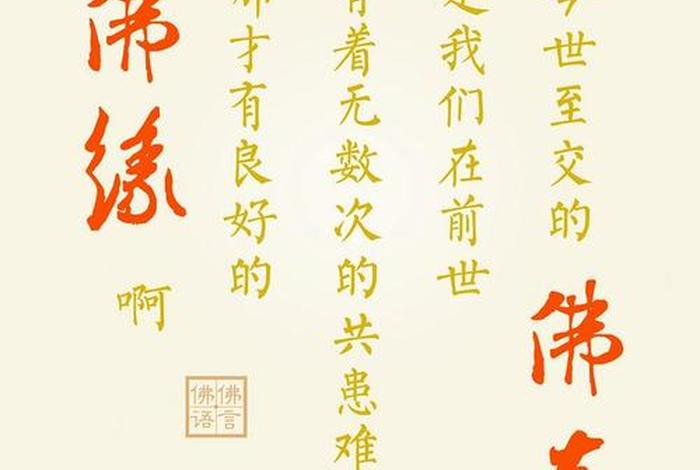 世至交的佛
是我们在前世
有着无数次的共患难
那才有良好的
佛缘啊
佛言
佛语